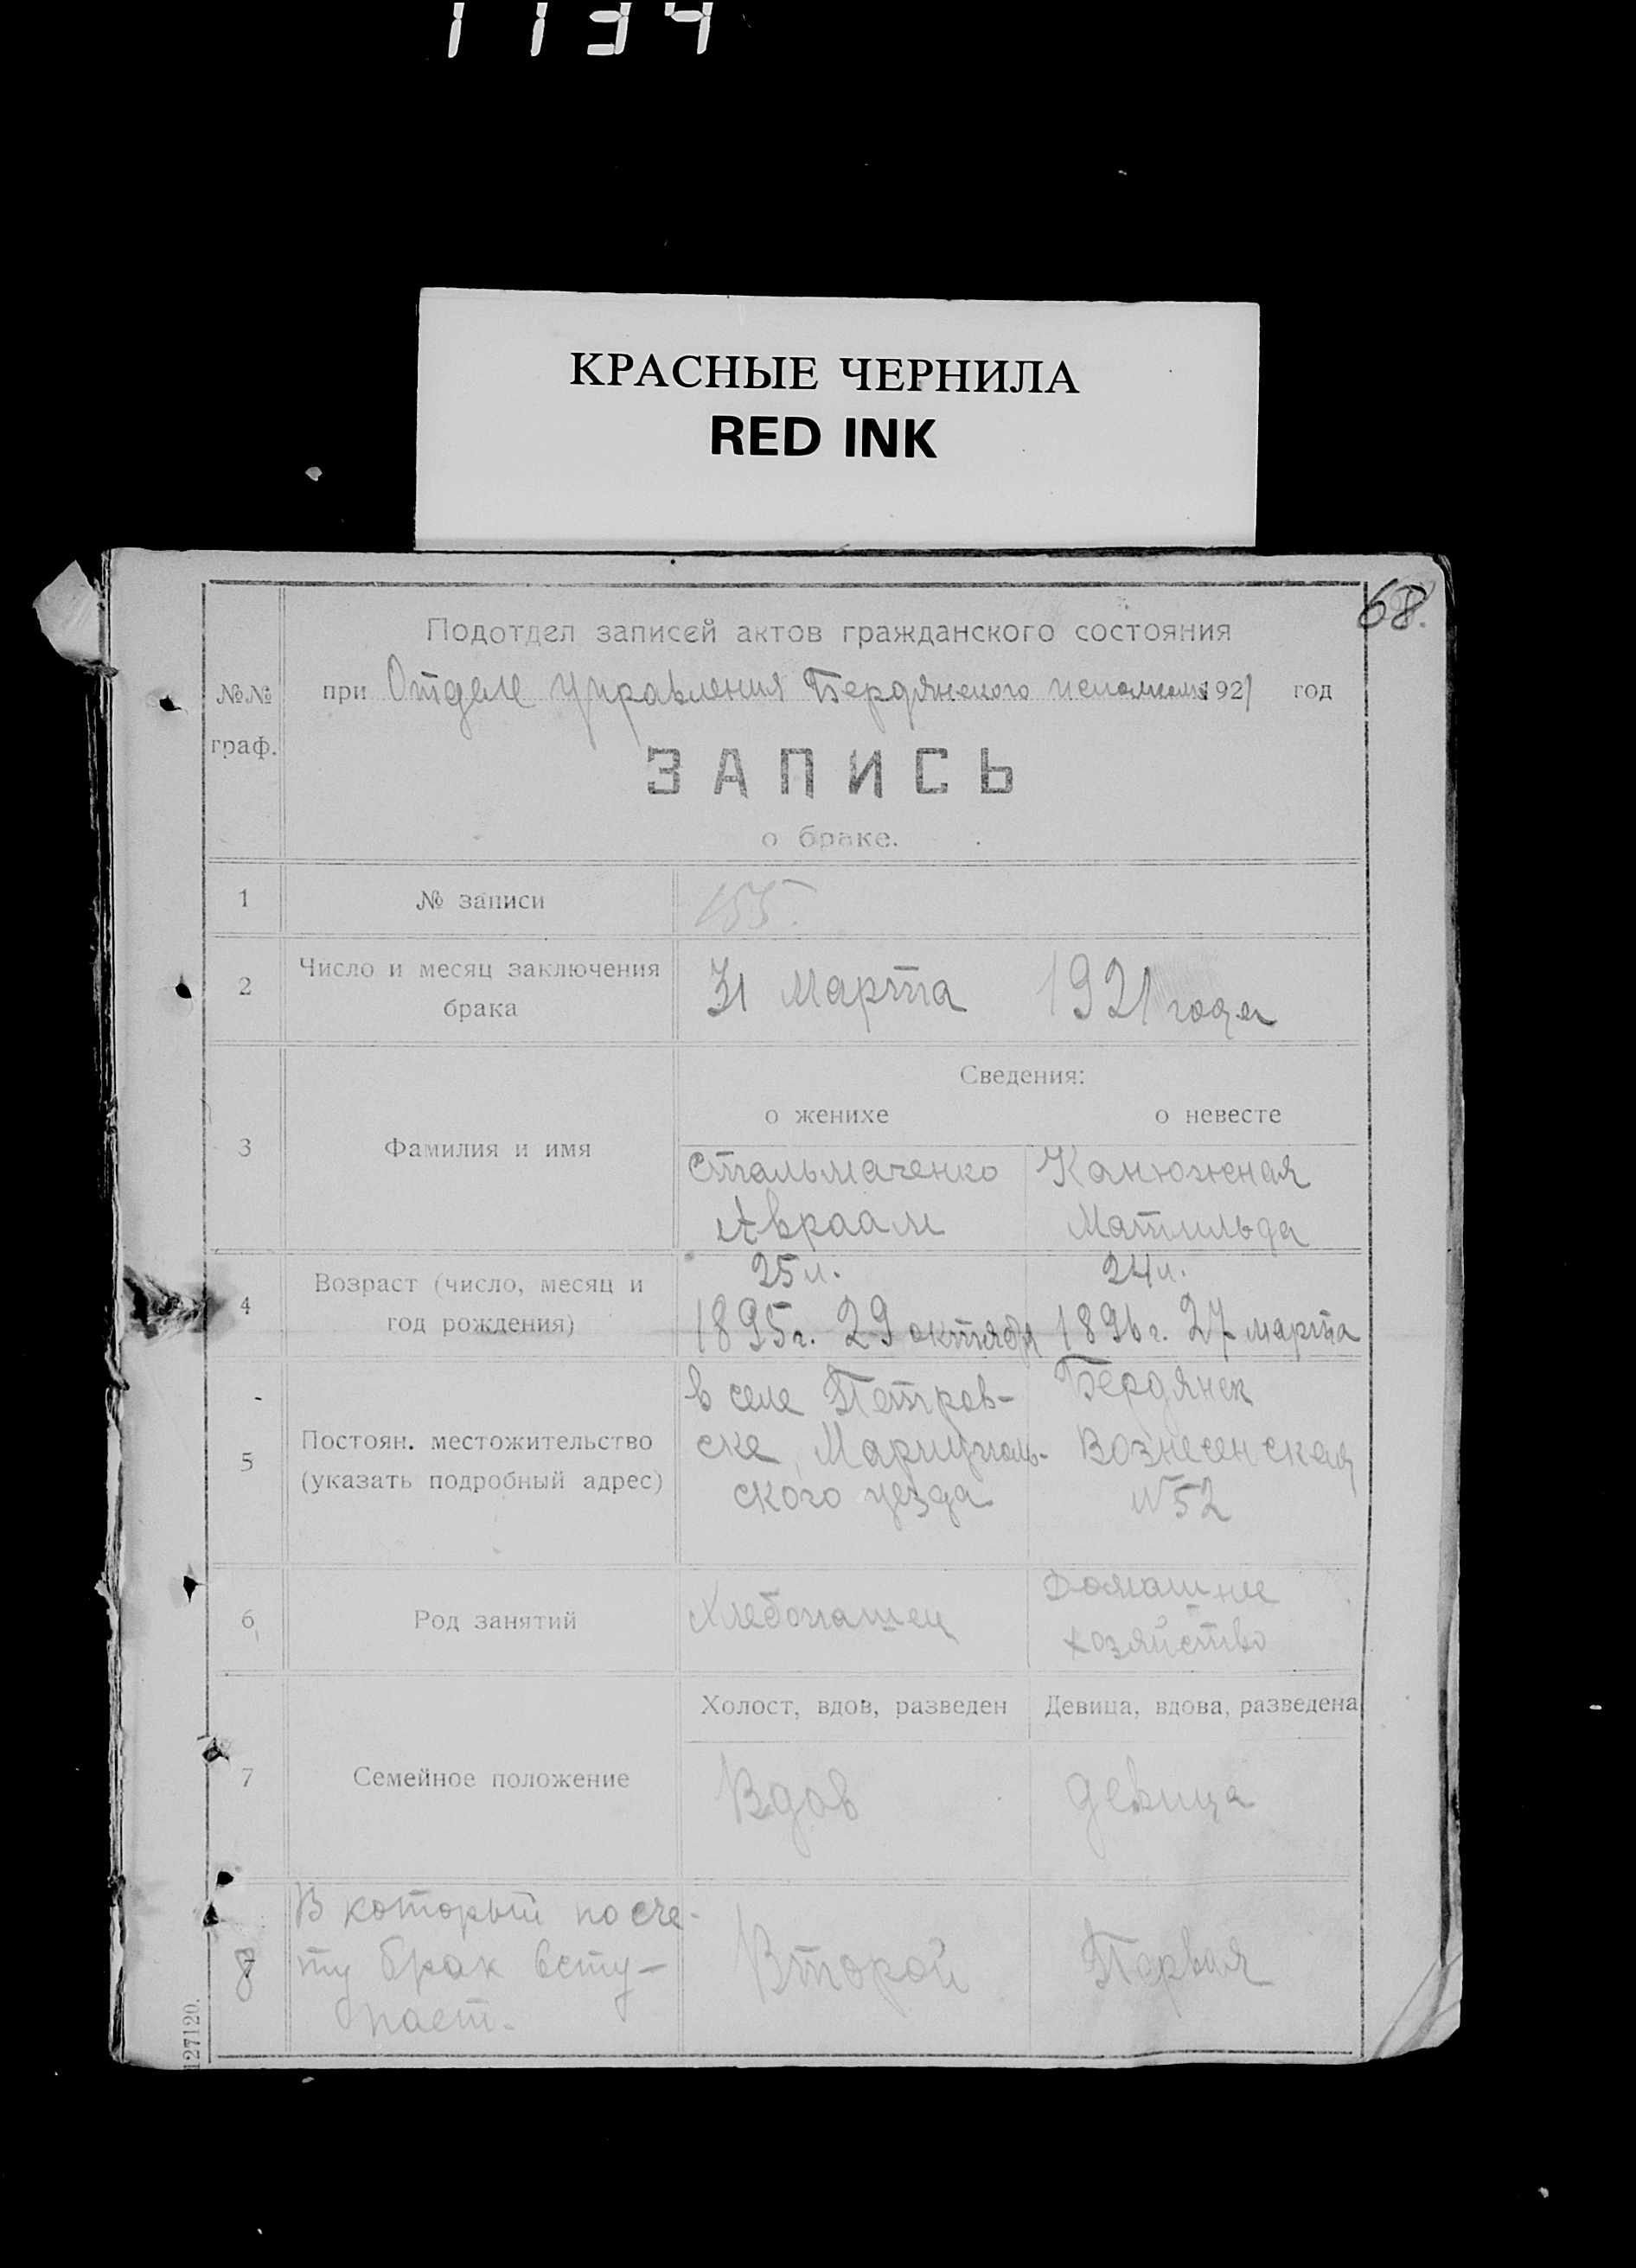 1134
КРАСНЫЕ ЧЕРНИЛА
RED INK
68.
Подотдел записей актов гражданского состояния
№№ граф.
при Отделе Управления Бердянского исполкома 1921 год
ЗАПИСЬ
о браке.
1 № записи 155.
2 Число и месяц заключения брака 31 Марта 1921 года
Сведения:
о женихе о невесте
3 Фамилия и имя
Стальмаченко Канюжная
Авраам Матильда
4 Возраст (число, месяц и год рождения)
25 л. 24 л.
1895 г. 29 октября 1896 г. 27 марта
5 Постоян. местожительство (указать подробный адрес)
в селе Петров- Бердянск
ске Мариуполь- Вознесенская
ского уезда №52
6 Род занятий
Хлебопашец Домашнее
хозяйство
Холост, вдов, разведен Девица, вдова, разведена
7 Семейное положение
Вдов девица
8 В который по сче-
ту брак всту-
пает.
Второй Первый
127120.